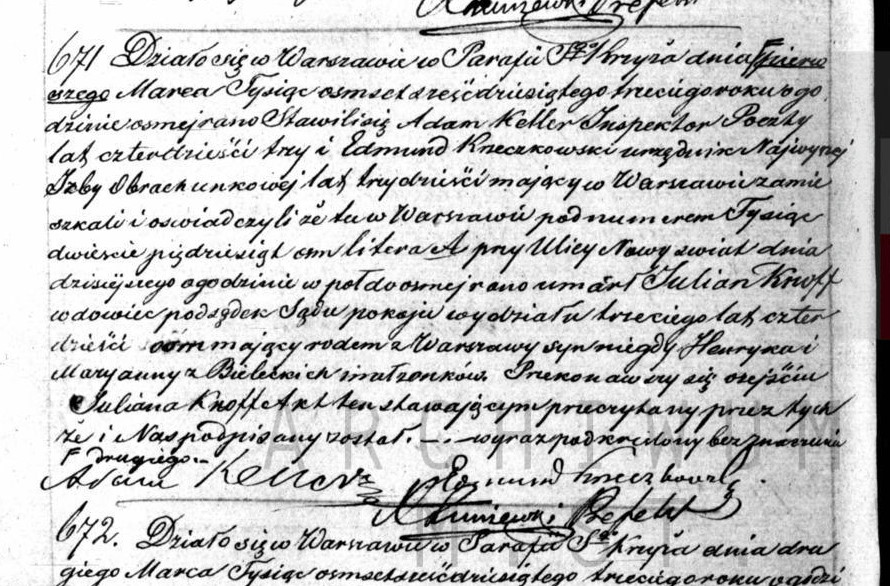 Prefekt
671 Działo się w Warszawie w Parafii Sgo Krzyża dnia ┌pierw
szego Marca Tysiąc osmset sześćdziesiątego trzeciego roku o go
dzinie osmej rano Stawili się Adam Keller Inspektor Poczty
lat czterdzieści trzy i Edmund Kneczkowski urzędnik Najwyzszej
Izby Obrachunkowej lat trzydzieści mający w Warszawie zamie
szkali i oswiadczyli że tu w Warszawie pod numerem Tysiąc
dwieście piędziesiąt osm litera A przy Ulicy Nowy swiat dnia
dzisiejszego o godzinie w poł do osmej rano umarł Julian Knoff
wdowiec podsędek Sądu pokoju wydziału trzeciego lat czter
dzieści osm mający rodem z Warszawy syn niegdy Henryka i
Maryanny z Bieleckich małżonków. Przekonawszy się o zejściu
Juliana Knoff Akt ten stawającym przeczytany przez tych
że i Nas podpisany został. —.— wyraz podkreslony bez znaczenia
┌ drugiego.—
Adam Keller Edmund Kneczkowski
Prefekt
672. Działo się w Warszawie w Parafii Sgo Krzyża dnia dru
giego Marca Tysiąc osmset sześćdziesiątego trzeciego roku o godzi
ARCHIWUM